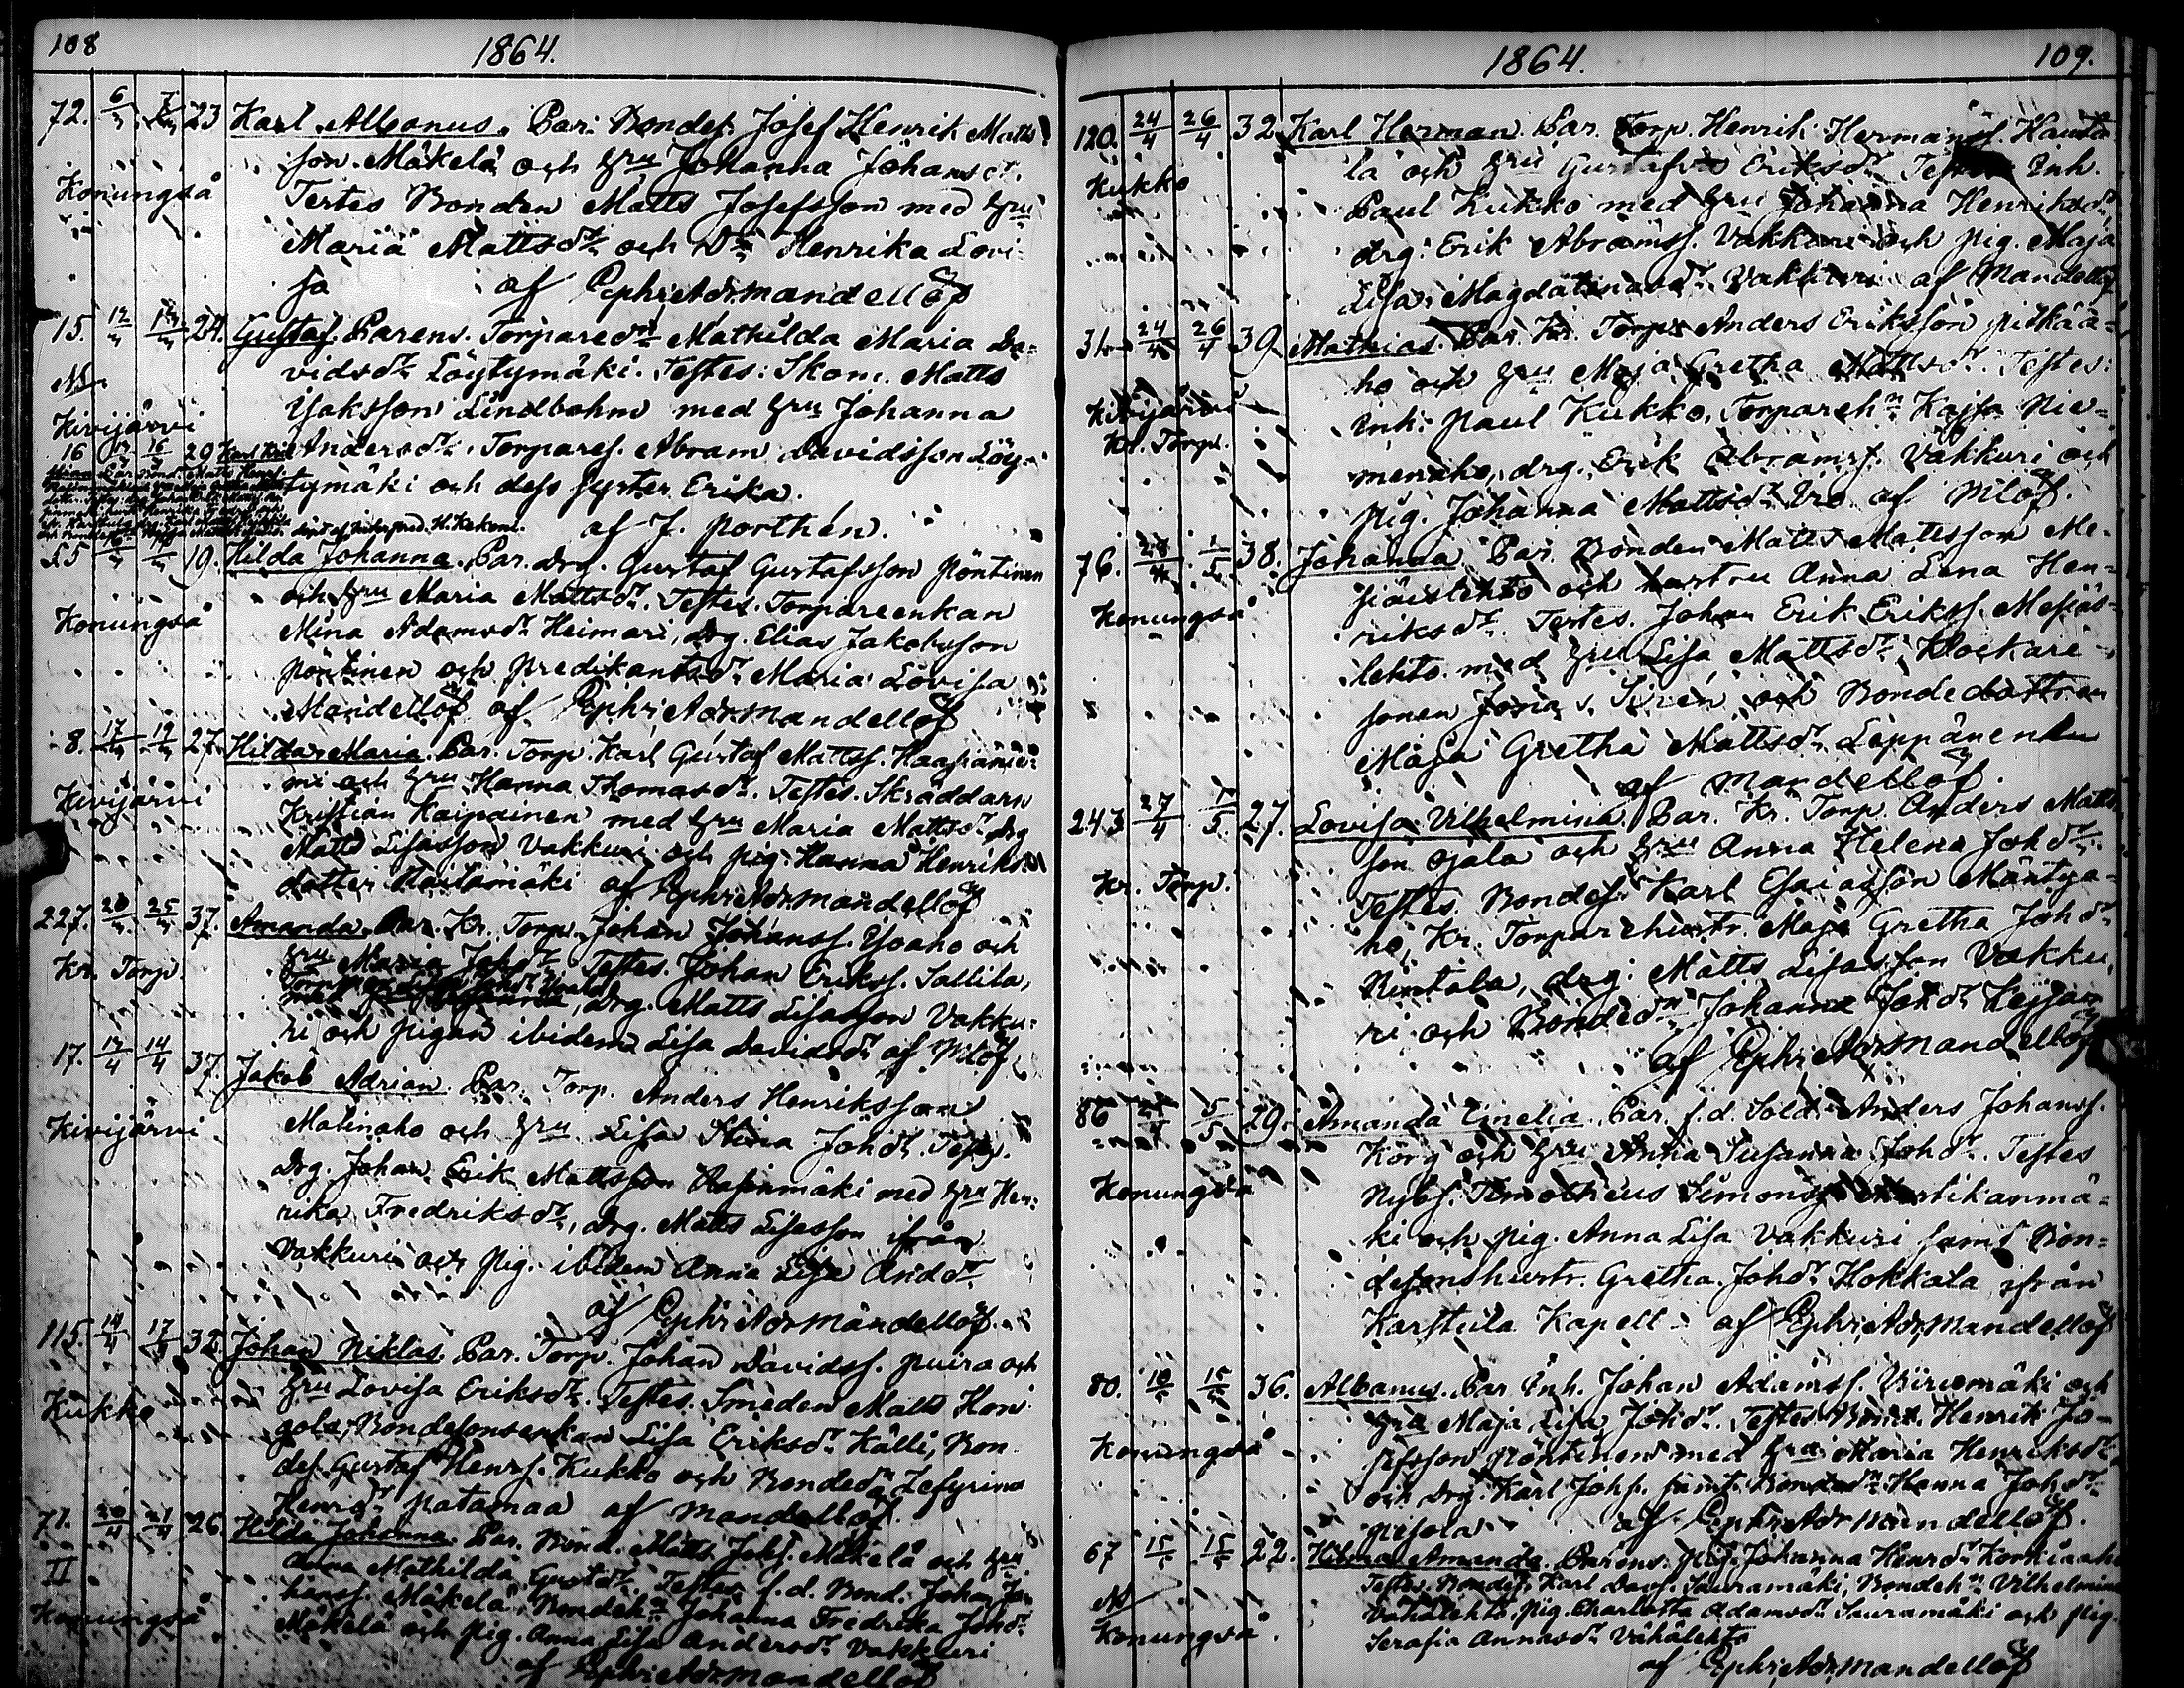 108
1864.
72. 6/4 7/4 23 Karl Albanus. Par. Bondes. Josef Henrik Matts
son Mäkelä och hru Johanna Johansdr.
Konungså Testes Bonden Matts Josefsson med hru
Maria Mattsdr och Dr Henrika Lovi-
sa af Ephr. Adr. Mandellöf
15. 12/4 24. Gustaf. Parens. Torparedr Mathilda Maria Da-
vidsdr Löytymäki. Testes: Skom. Matts
Isaksson Lindbohm med hru Johanna
Kivijärvi Andersdr, Torpares. Abram Davidsson Löy-
16 16 29 Karl
tymäki och dess syster Erika.
af J. Porthén.
55 19. Hilda Johanna. Par. drg. Gustaf Gustafsson Pöntinen
och hru Maria Mattsdr. Testes. Torpareenkan
Konungså Mina Adamsdr Heimari, drg. Elias Jakobsson
Pöntinen och predikantsdr Maria Lovisa
Mandellöf af Ephr. Adr. Mandellöf
8. 17/4 19/4 27. Hilda Maria. Par. Torp. Karl Gustaf Mattss. Haapanie-
mi och hru Hanna Thomasdr. Testes. Skräddarn
Kivijärvi Kristian Kaipainen med hru Maria Mattsdr, drg
Matts Lisasson Vakkuri och pig. Hanna Henriks
dotter Hautamäki af Ephr. Adr. Mandellöf
227. 20/4 25/4 37. Amanda. Par. Kr. Torp. Johan Johanss. Ysaho och
hru Maria Johdr. Testes. Johan Erikss. Sallila,
Kr. Torp. drg. Matts Lisasson Vakku-
ri och pigan ibidem Lisa Davidsdr af Mlöf
17. 12/4 14/4 37. Jakob Adrian. Par. Torp. Anders Henriksson
Matinaho och hru Lisa Stina Johdr. Testes.
Kivijärvi Drg. Johan Erik Mattsson Hapinmäki med hru Hen-
rika Fredriksdr, Drg. Matts Lisasson ifrån
Vakkuri och pig. ibidem Anna Lisa Anddr
af Ephr. Adr. Mandellöf.
115. 14/4 17/4 32. Johan Niklas. Par. Torp. Johan Davidss. Puira och
hru Lovisa Eriksdr. Testes. Smeden Matts Hon
Kukko gola, Bondesonsenkan Lisa Eriksdr Källi, Bon
des. Gustaf Henrs. Kukko och Bondedr Zefyrina
Henrdr Patamaa af Mandellöf.
71. 20/4 21/4 26. Hilda Johanna. Par. Bond. Matts Johs. Mäkelä och hru
II Anna Mathilda Gustdr. Testes f.d. Bond. Johan Jo
hanss. Mäkelä, Bondehu Johanna Fredrika Johdr
Konungså Mäkelä och pig. Anna Lisa Andersdr Vakkuri
af Ephr. Adr. Mandellöf
1864.
109.
120. 24/4 26/4 32. Karl Herman. Par. Torp. Henrik Hermans. Kauta
la och hru Gustafva Eriksdr. Testes Inh.
Kukko Paul Kukko med hru Johanna Henriksdr,
drg. Erik Abramss. Vakkuri och pig. Maja
Lisa Magdalenasdr Vakkuri af Mandellöf
31. 24/4 26/4 39. Mathias. Par. Kr. Torp. Anders Eriksson Pitkäa-
ho och hru Maja Gretha Mattsdr. Testes:
Kivijärvi Inh. Paul Kukko, Torpareh. Kajsa Nie-
Kr. Torp. menaho, drg. Erik Abramss. Vakkuri och
pig. Johanna Mattsdr Iro af Mlöf.
76. 28/4 1/5 38. Johanna Par. Bonden Matts Mattsson Me-
siäislehto och hustru Anna Lena Hen-
Konungså riksdr. Testes. Johan Erik Erikss. Mesiäs-
lehto med hru Lisa Mattsdr, Klockare-
sonen Josia s. Siren och Bondedottren
Maja Gretha Mattsdr Leppänen
af Mandellöf.
243. 27/4 1/5 27. Lovisa Vilhelmina. Par. Kr. Torp. Anders Matts
son Ojala och hru Anna Helena Johdr.
Kr. Torp. Testes. Bondes. Karl Esaiasson Mäntya-
ho, Kr. Torparehustr. Maja Gretha Johdr
Rintala, drg. Matts Lisasson Vakku
ri och Bondedr Johanna Johdr
af Ephr. Adr. Mandellöf
86 5/5 29. Amanda Emelia. Par. f.d. Sold. Anders Johanss.
Korg och hru Anna Susanna Johdr. Testes
Konungså Nybs. Timotheus Simonss. Martikanmä-
ki och pig. Anna Lisa Vakkuri samt Bon-
desonshustr. Gretha Johdr Hokkala ifrån
Karstula Kapell af Ephr. Adr. Mandellöf
80. 10/5 15/5 36. Albanus. Par. Inh. Johan Adamss. Viriemäki och
hru Maja Lisa Johdr. Testes Bond. Henrik Jo-
Konungså sefsson Pöntinen med hru Maria Henriksdr
och drg. Karl Johs. samt Bondedr Hanna Johdr
Pisola af Ephr. Adr. Mandellöf.
67 15/5 15/5 22. Hilma Amanda. Parens. Pig. Johanna Henrdr Korkiaaho
Testes. Bondes. Karl Davs. Sauramäki, Bondeh. Vilhelmina
Konungså Vähälehto, pig. Charlotta Adamsdr Sauramäki och pig.
Serafia Annasdr Vähälehto
af Ephr. Adr. Mandellöf